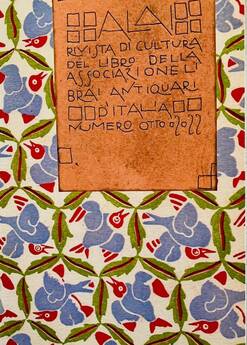 ALAI
RIVISTA DI CULTURA
DEL LIBRO DELLA
ASSOCIAZIONE LI
BRAI ANTIQUARI
D'ITALIA
NUMERO OTTO 2022